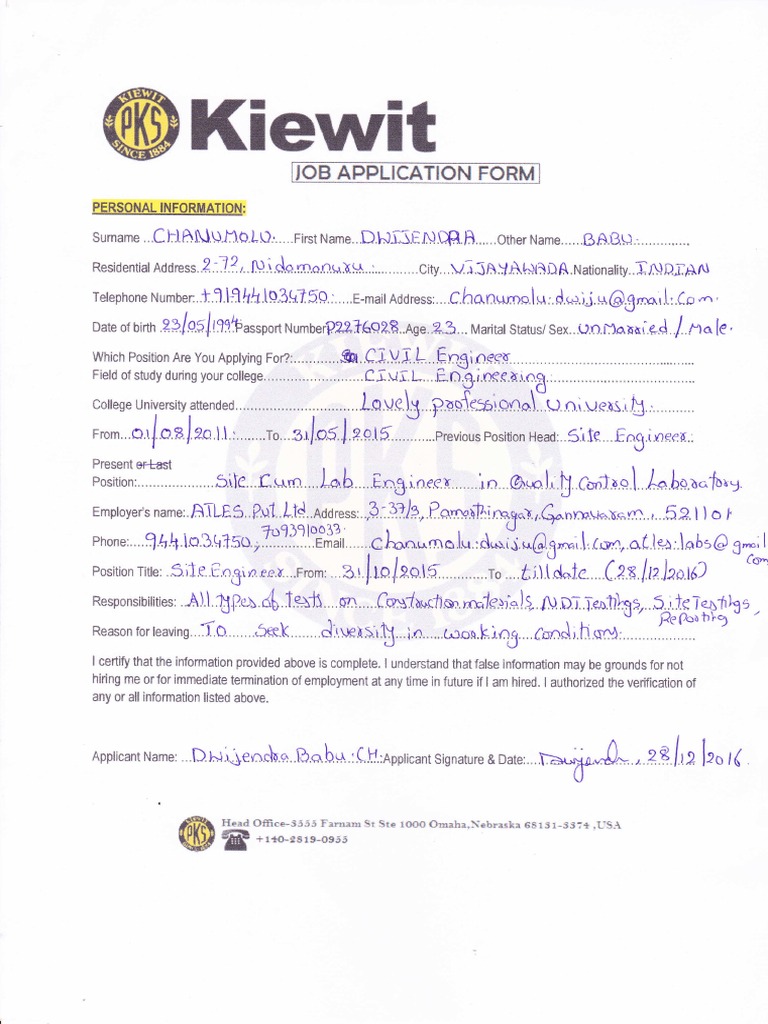 KIEWIT PKS SINCE 1884
Kiewit
JOB APPLICATION FORM
PERSONAL INFORMATION:
Surname ...CHANUMOLU......First Name...DWIJENDRA......Other Name......BABU...............
Residential Address. 2-72, Nidamanuru...............City....VIJAYAWADA.Nationality..INDIAN
Telephone Number:..+919441034750........E-mail Address:....Chanumolu.dwiju@gmail.com
Date of birth 23/05/1994 Passport Number P2276028 Age 23 Marital Status/ Sex...unMarried / Male.
Which Position Are You Applying For?:............CIVIL Engineer
Field of study during your college.........................CIVIL Engineering
College University attended.........................Lovely professional University.
From...01/08/2011......To...31/05/2015..........Previous Position Head: Site Engineer.
Present or Last
Position:..............Site Cum Lab Engineer in Quality Control Laboratory
Employer's name: ATLES Pvt. Ltd Address: 3-37/3, Pamarthinagar, Gannavaram, 521101
7093910033
Phone:...9441034750,...........Email.........Chanumolu.dwiju@gmail.com, atles.labs@gmail
com
Position Title: Site Engineer From: ...31/10/2015..........To...till date (28/12/2016)
Responsibilities: All types of tests on Construction materials, NDT Testings, Site Testings,
Reporting
Reason for leaving...To seek diversity in working conditions.
I certify that the information provided above is complete. I understand that false information may be grounds for not
hiring me or for immediate termination of employment at any time in future if I am hired. I authorized the verification of
any or all information listed above.
Applicant Name: ...Dwijendra Babu.CH.Applicant Signature & Date:...Dwijendr, 28/12/2016
PKS
Head Office-3555 Farnam St Ste 1000 Omaha,Nebraska 68131-3374 ,USA
+140-2819-0955